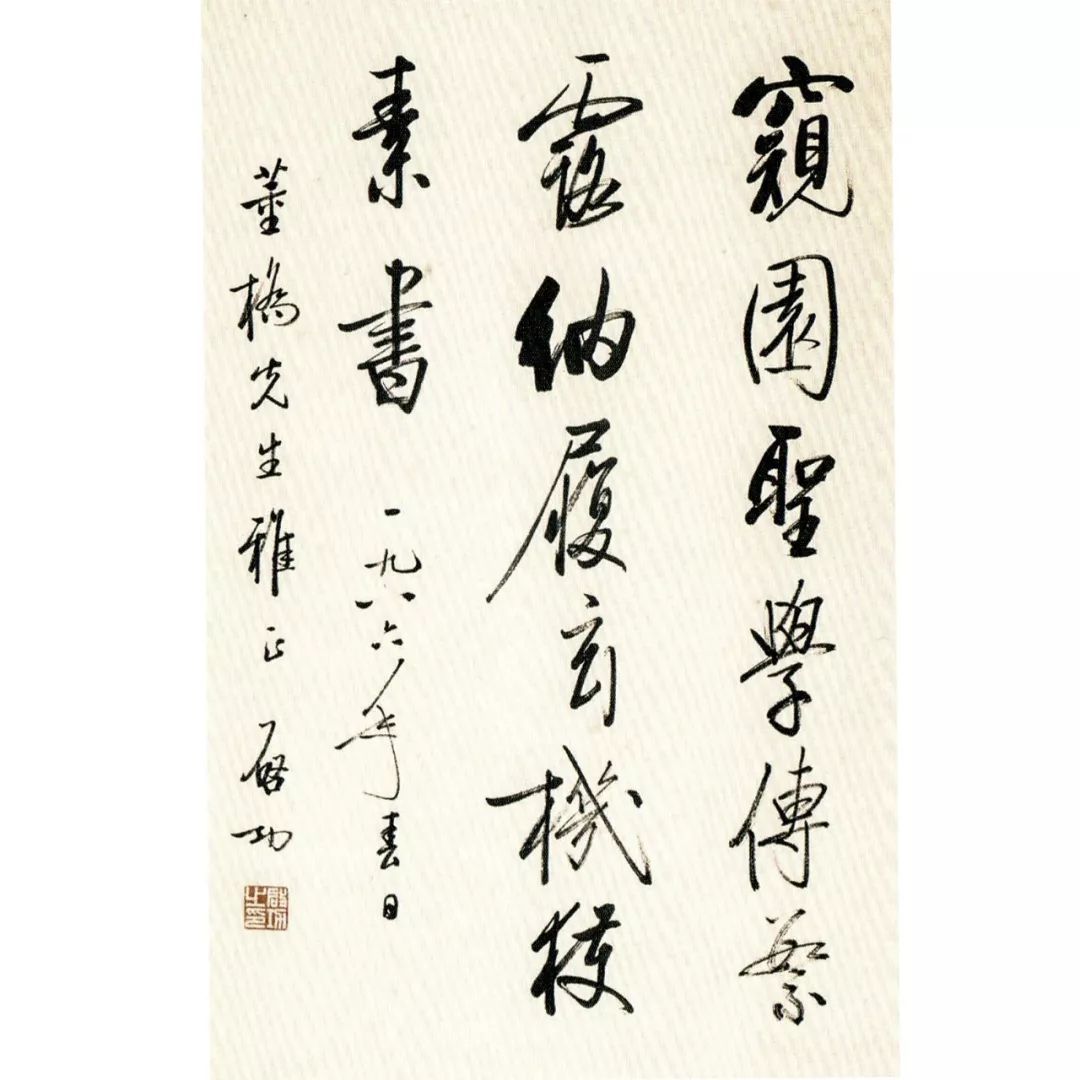 窺園聖學傳繁
露納履玄機獲
素書 一九八六年春日
董橋先生雅正 啓功
啟功之印